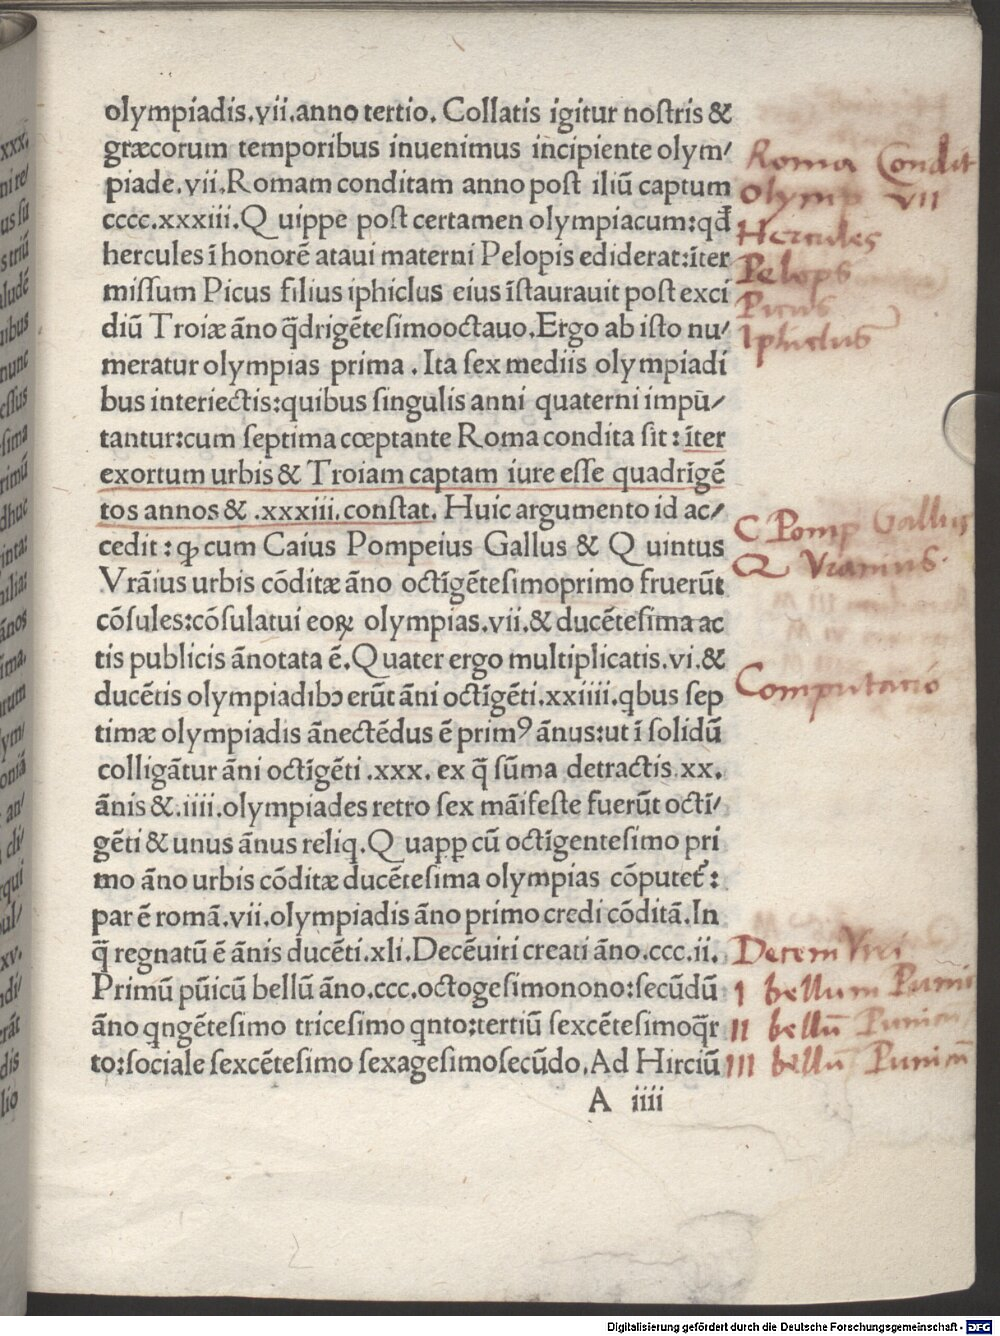 olympiadis.vii.anno tertio. Collatis igitur noſtris &
græcorum temporibus inuenimus incipiente olym⸗
piade.vii.Romam conditam anno poſt iliū captum
cccc.xxxiii.Q uippe poſt certamen olympiacum:qđ
hercules ī honorē ataui materni Pelopis ediderat:īter
miſſum Picus filius iphiclus eius īſtaurauit poſt exci
diū Troiæ āno q̄drigēteſimooctauo.Ergo ab iſto nu⸗
meratur olympias prima . Ita ſex mediis olympiadi
bus interiectis:quibus ſingulis anni quaterni impū⸗
tantur:cum ſeptima cœptante Roma condita ſit : īter
exortum urbis & Troiam captam iure eſſe quadrigē
tos annos & .xxxiii.conſtat. Huic argumento id ac⸗
cedit : ꝙ cum Caius Pompeius Gallus & Q uintus
Vrāius urbis cōditæ āno octīgēteſimoprimo fruerūt
cōſules:cōſulatui eoꝝ olympias.vii.& ducēteſima ac
tis publicis ānotata ē.Quater ergo multiplicatis.vi.&
ducētis olympiadibꝫ erūt āni octīgēti.xxiiii.qbus ſep
timæ olympiadis ānectēdus ē primꝰ ānus:ut ī ſolidū
colligātur āni octīgēti .xxx. ex q̄ ſūma detractis.xx.
ānis &.iiii.olympiades retro ſex māifeſte fuerūt octī⸗
gēti & unus ānus reliq.Q uapp cū octīgenteſimo pri
mo āno urbis cōditæ ducēteſima olympias cōputet᷑:
par ē romā.vii.olympiadis āno primo credi cōditā.In
q̄ regnatū ē ānis ducēti.xli.Decēuiri creati āno.ccc.ii.
Primū pūicū bellū āno.ccc.octogeſimonono:ſecūdū
āno qngēteſimo triceſimo qnto:tertiū ſexcēteſimoq̄r
to:ſociale ſexcēteſimo ſexageſimoſecūdo.Ad Hirciū
A iiii
Roma Condit
Olymp VII
Hercules
Pelops
Picus
Iphiclus
C Pomp Gallus
Q Vranius.
Computatio
Decem Viri
I bellum Puni
II bellū Punicu
III bellū Punicū
Digitalisierung gefördert durch die Deutsche Forschungsgemeinschaft - DFG